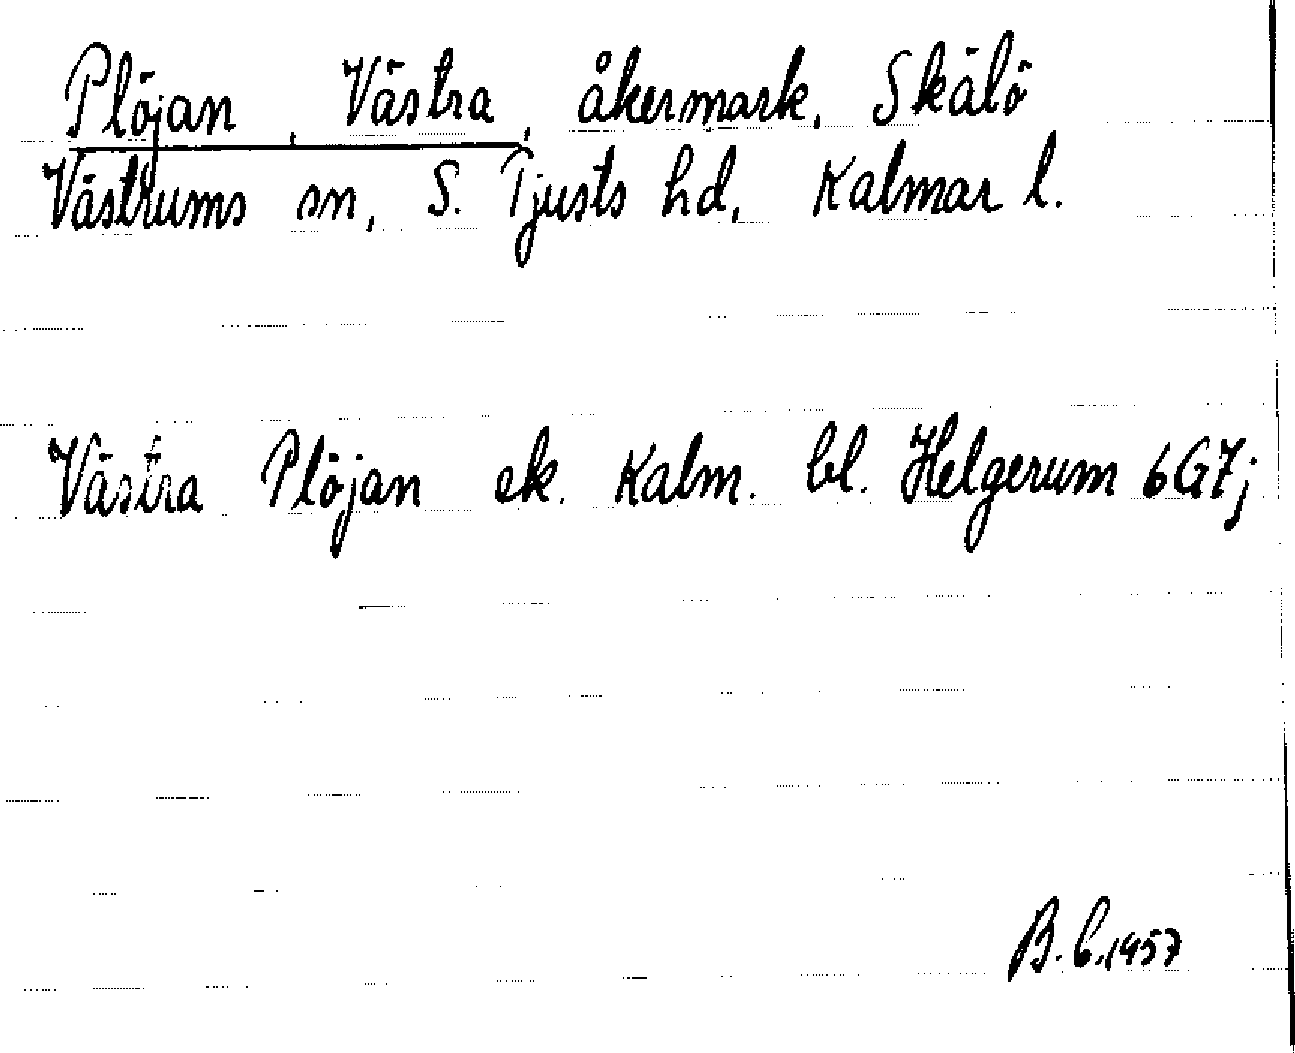 Plöjan, Västra, åkermark, Skälö
Västrums sn, S. Tjusts hd, Kalmar l.
Västra Plöjan ek. Kalm. bl. Helgerum 6G7j
B.G.1957